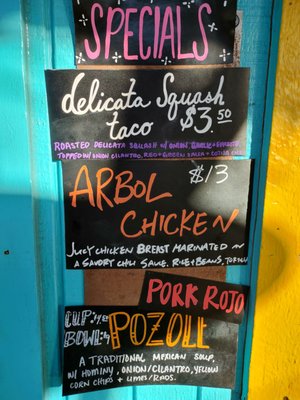 SPECIALS
delicata Squash
taco $3.50
ROASTED DELICATA SQUASH W/ ONION, GARLIC +
TOPPED W/ ONION CILANTRO, RED + GREEN SALSA + COTIJA
ARBOL $13
CHICKEN
JUICY CHICKEN BREAST MARINATED ~
A SAVORY CHILI SAUCE. RICE + BEANS,
PORK ROJO
CUP:
BOWL: POZOLE
A TRADITIONAL MEXICAN SOUP,
W/ HOMINY, ONION/CILANTRO, YELLOW
CORN CHIPS + LIMES/RADS.